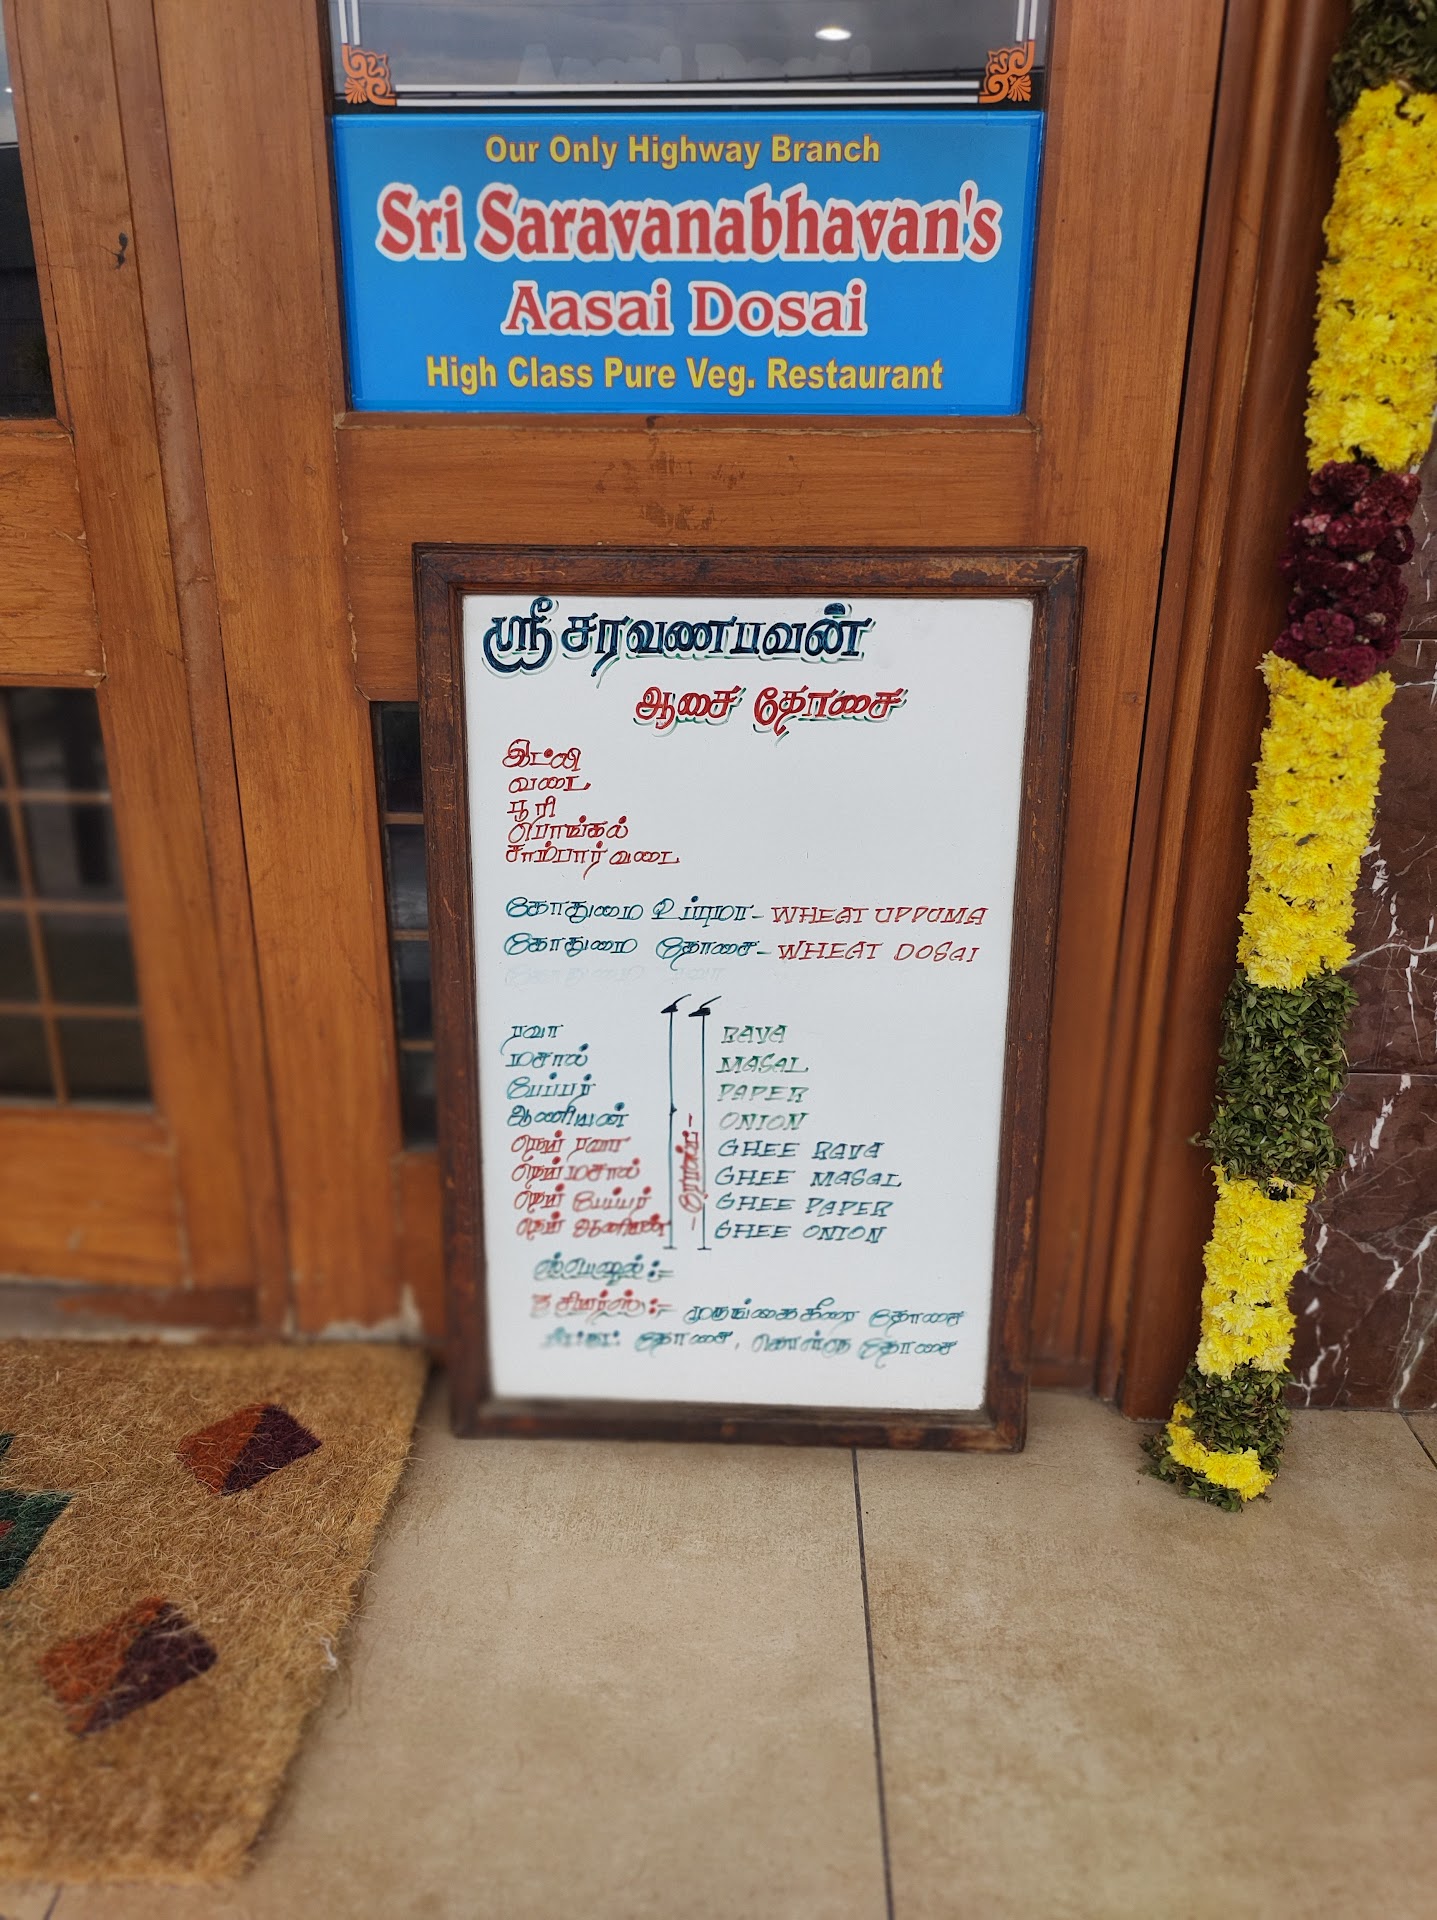 Our Only Highway Branch
Sri Saravanabhavan's
Aasai Dosai
High Class Pure Veg. Restaurant
ஸ்ரீ சரவணபவன்
ஆசை தோசை
இட்லி
வடை
பூரி
பொங்கல்
சாம்பார் வடை
கோதுமை உப்புமா - WHEAT UPPUMA
கோதுமை தோசை - WHEAT DOSAI
ரவா RAVA
மசால் MASAL
பேப்பர் PAPER
ஆனியன் ONION
நெய் ரவா GHEE RAVA
நெய் மசால் GHEE MASAL
நெய் பேப்பர் GHEE PAPER
நெய் ஆனியன் GHEE ONION
- ரோஸ்ட் -
ஸ்பெஷல் :-
முருங்கைகீரை தோசை
தோசை, கொள்ளு தோசை